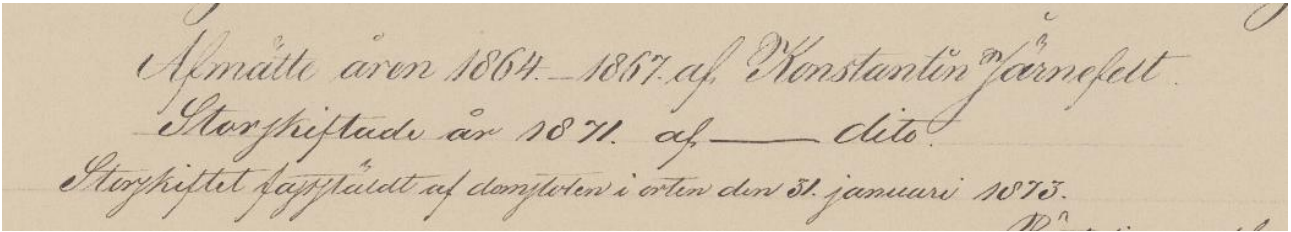 Afmätte åren 1864.–1867. af Konstantin Järnefelt.
Storskiftade år 1871. af —— dito.
Storskiftet fastställdt af domstolen i orten den 31. januari 1873.